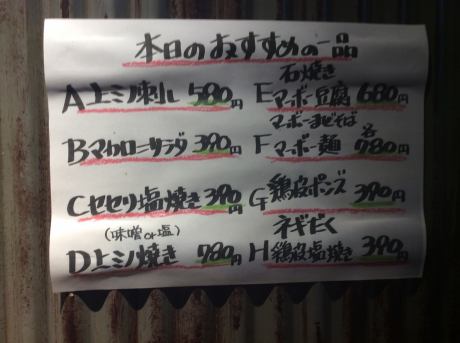 本日のおすすめの一品
A上ミノ刺し 580円
Bマカロニサラダ 390円
Cセセリ塩焼き 390円
(味噌or塩)
D上ミノ焼き 780円
石焼き
Eマーボー豆腐 680円
マーボーまぜそば
Fマーボー麺 各780円
G鶏皮ポンズ 390円
ネギだく
H鶏皮塩焼き 390円